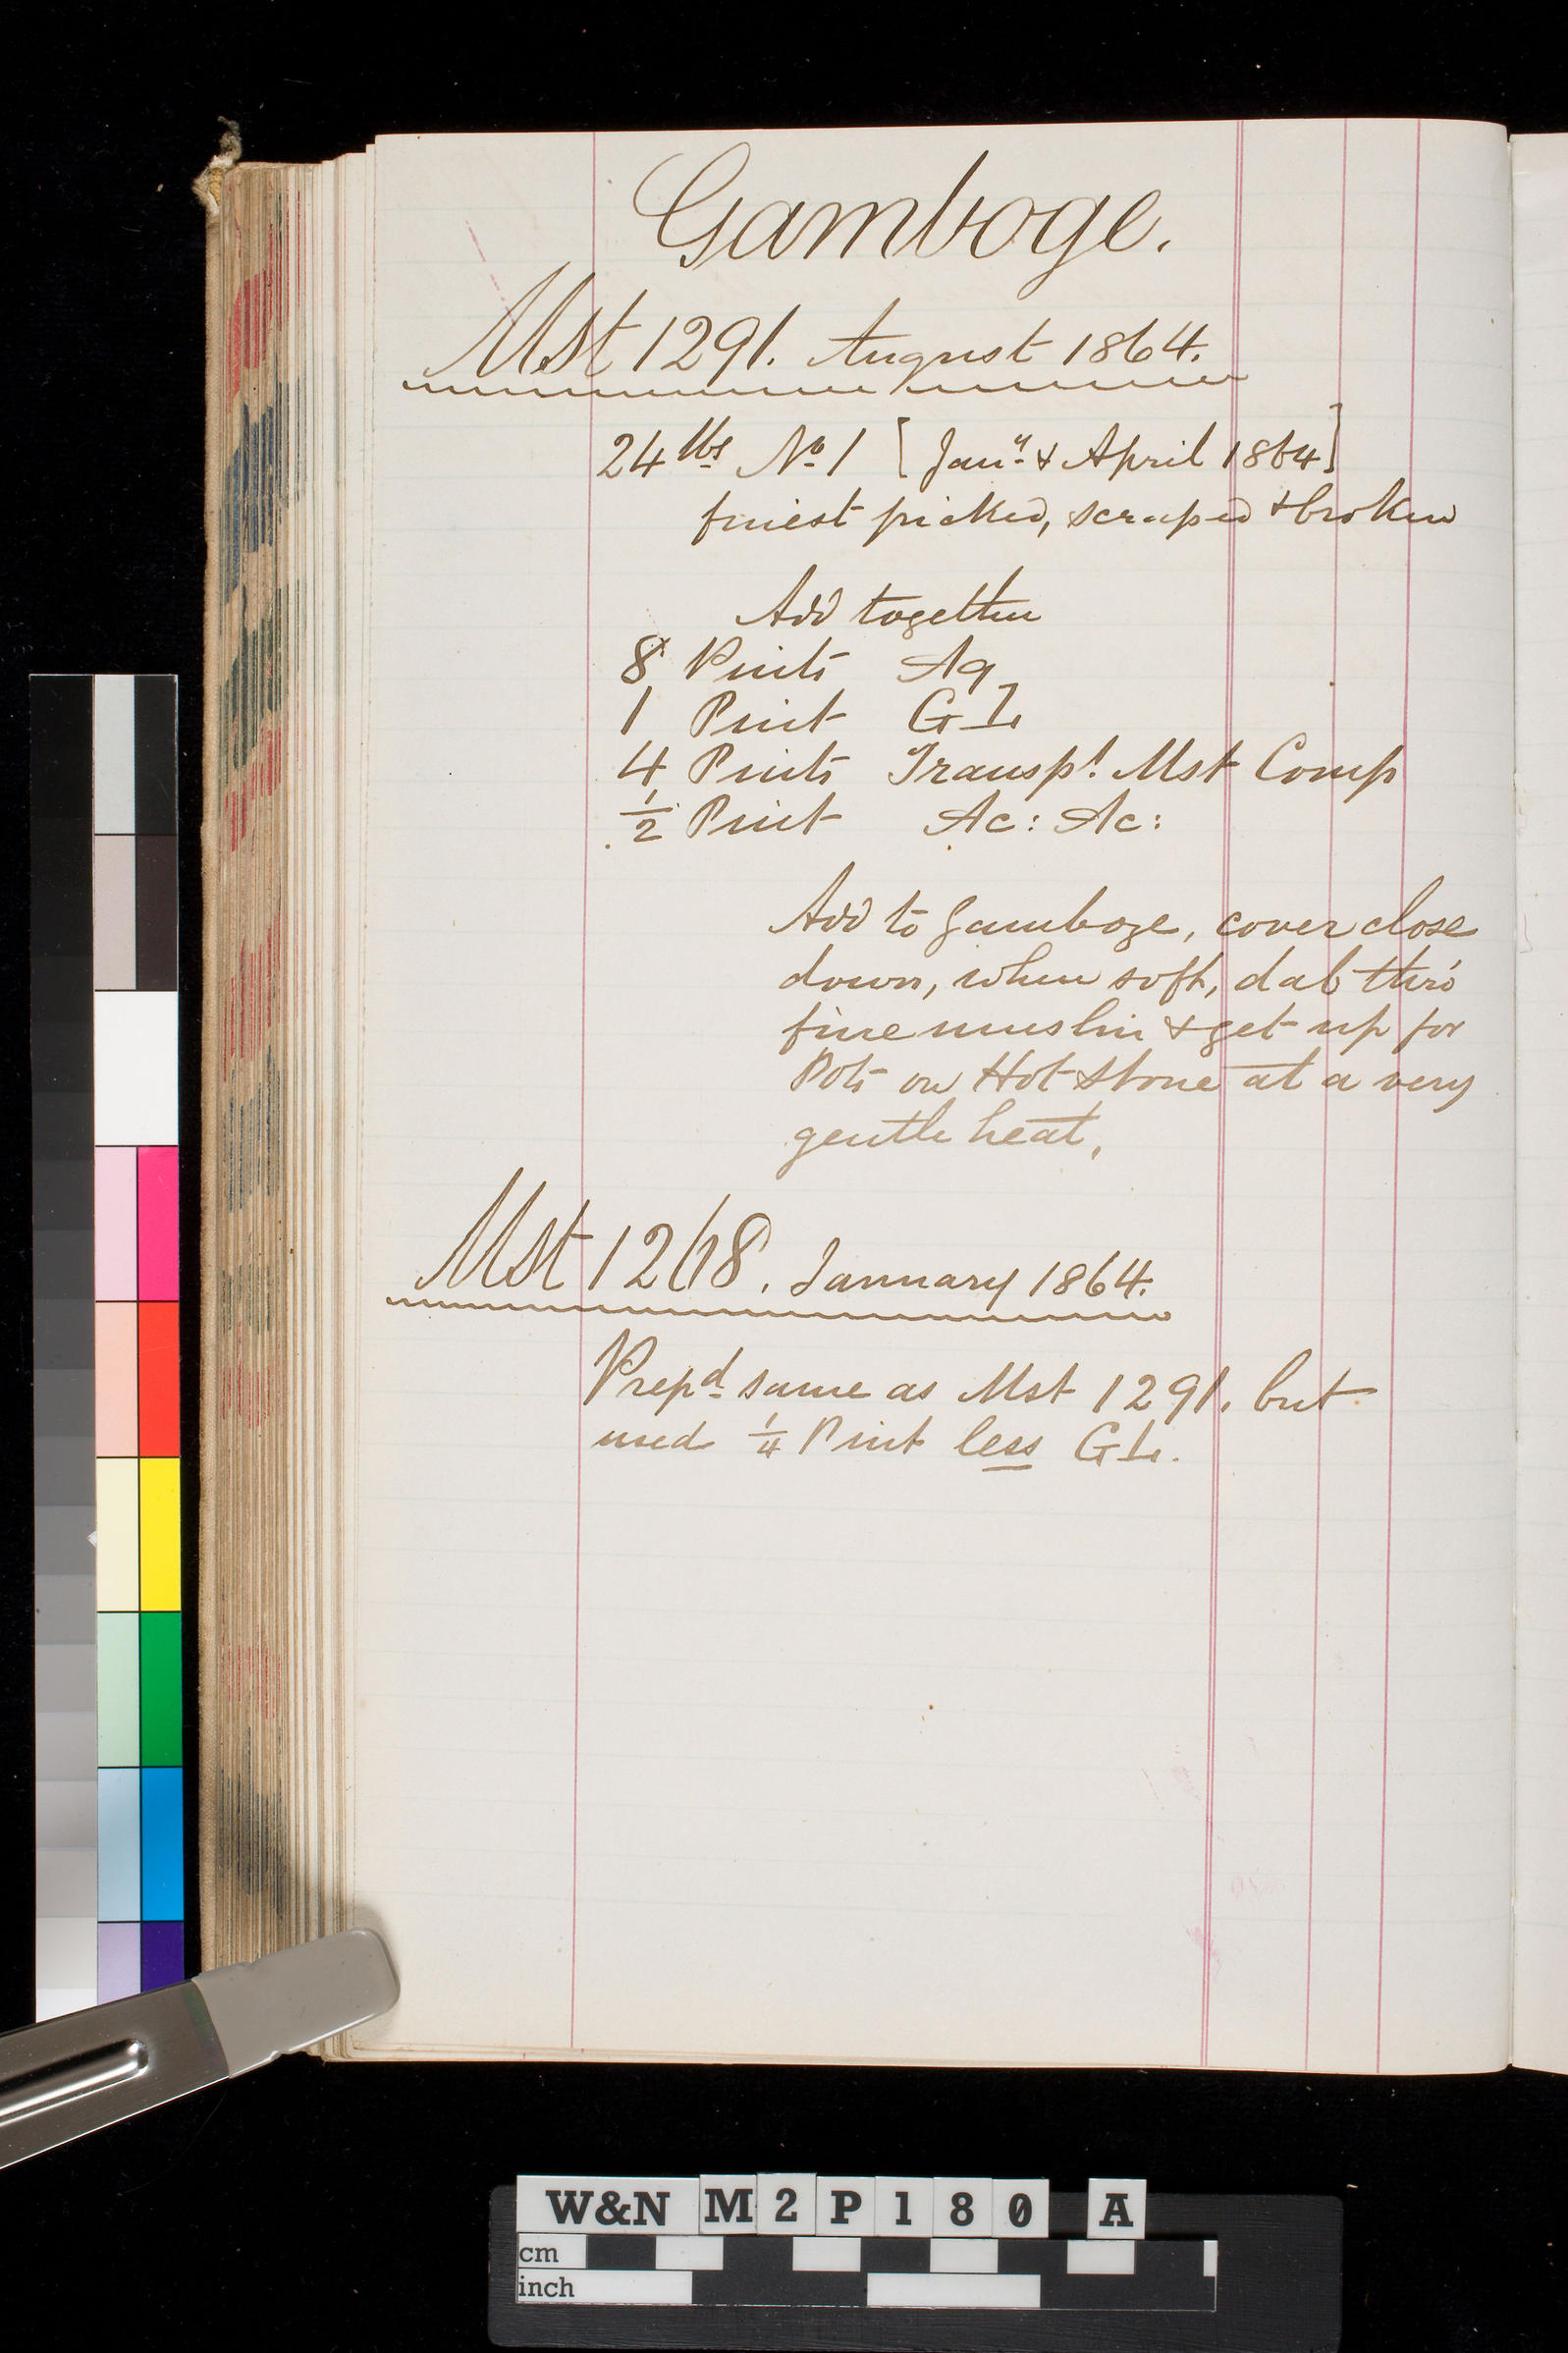 Gamboge.
Mst 1291. August 1864.
24 lbs No 1 [Jany & April 1864]
finest picked, scraped & broken
Add together
8 Pints Aq
1 Pint GL
4 Pints Transpt. Mst Comp
1/2 Pint Ac: Ac:
Add to Gamboge, cover close
down, when soft, dab thro'
fine muslin & get up for
Pots on Hot Stone at a very
gentle heat,
Mst 1268. January 1864.
Prepd same as Mst 1291. but
used 1/4 Pint less GL.
W&N M2P180 A
cm
inch